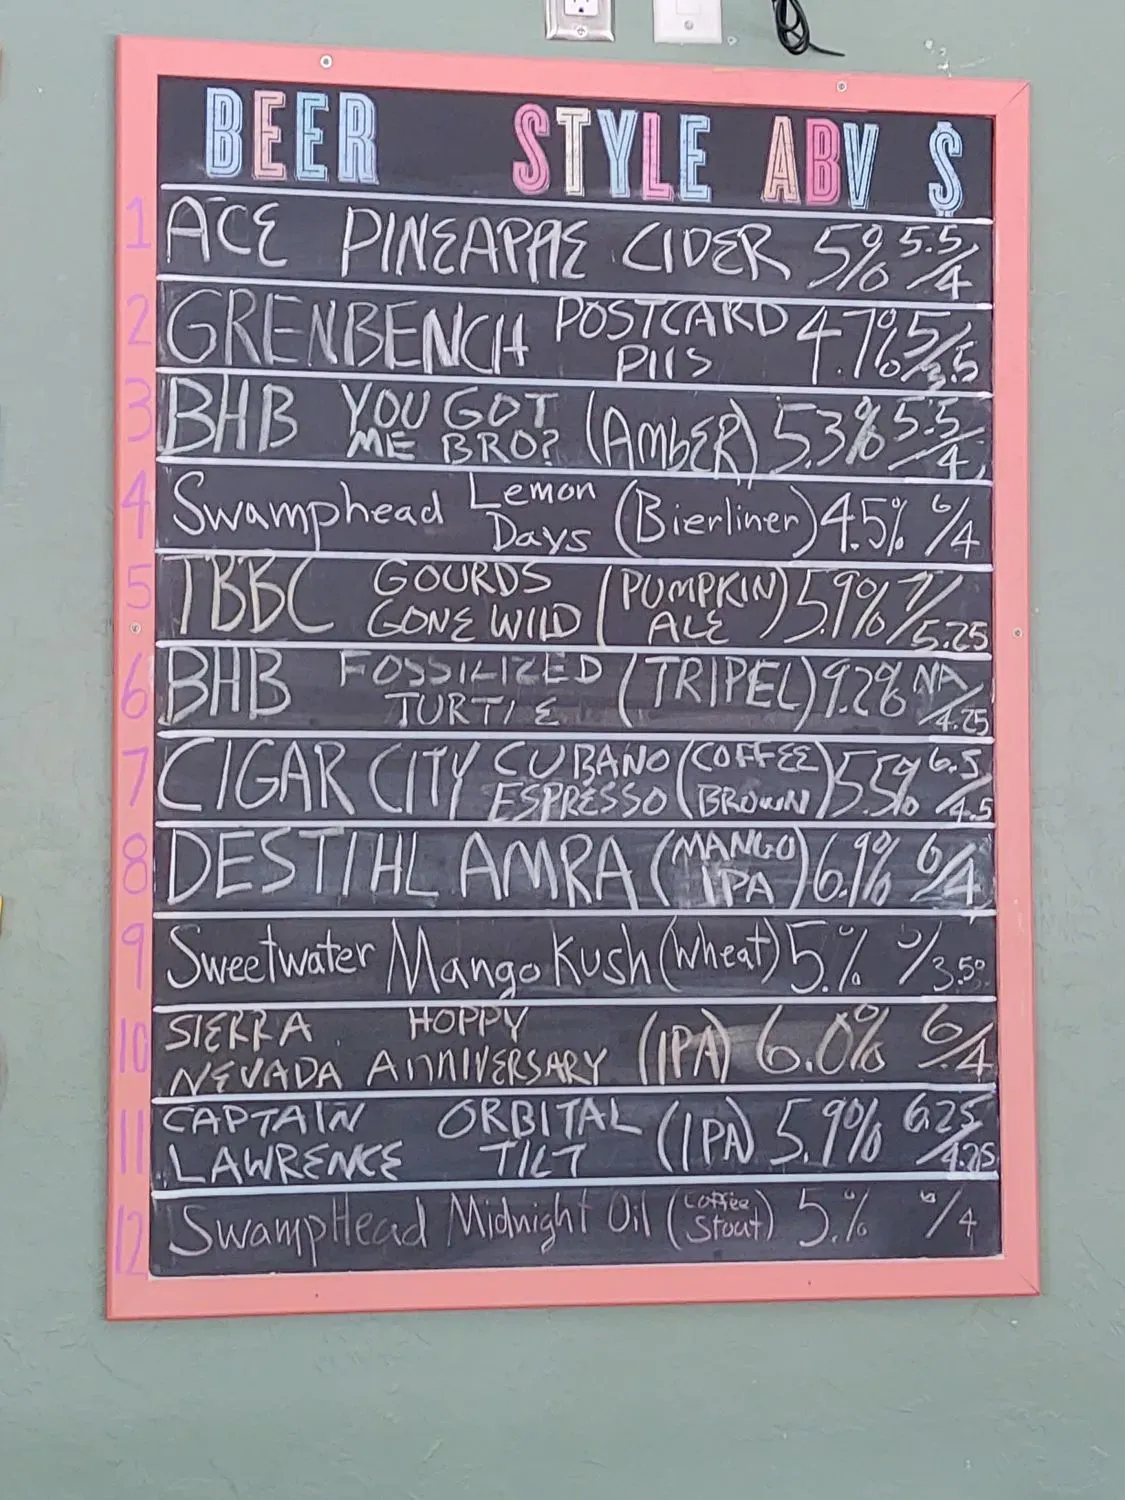 BEER STYLE ABV $
1 ACE PINEAPPLE CIDER 5% 5.5/4
2 GRENBENCH POSTCARD PILS 4.7% 5/3.5
3 BHB YOU GOT ME BRO? (AMBER) 5.3% 5.5/4
4 Swamphead Lemon Days (Bierliner) 4.5% 6/4
5 TBBC GOURDS GONE WILD (PUMPKIN ALE) 5.9% 7/5.25
6 BHB FOSSILIZED TURTLE (TRIPEL) 9.2% NA/4.25
7 CIGAR CITY CUBANO ESPRESSO (COFFEE BROWN) 5.5% 6.5/4.5
8 DESTIHL AMRA (MANGO IPA) 6.9% 6/4
9 Sweetwater Mango Kush (Wheat) 5.% 5/3.50
10 SIERRA NEVADA HOPPY ANNIVERSARY (IPA) 6.0% 6/4
11 CAPTAIN LAWRENCE ORBITAL TILT (IPA) 5.9% 6.25/4.25
12 SwampHead Midnight Oil (Coffee Stout) 5.% 6/4